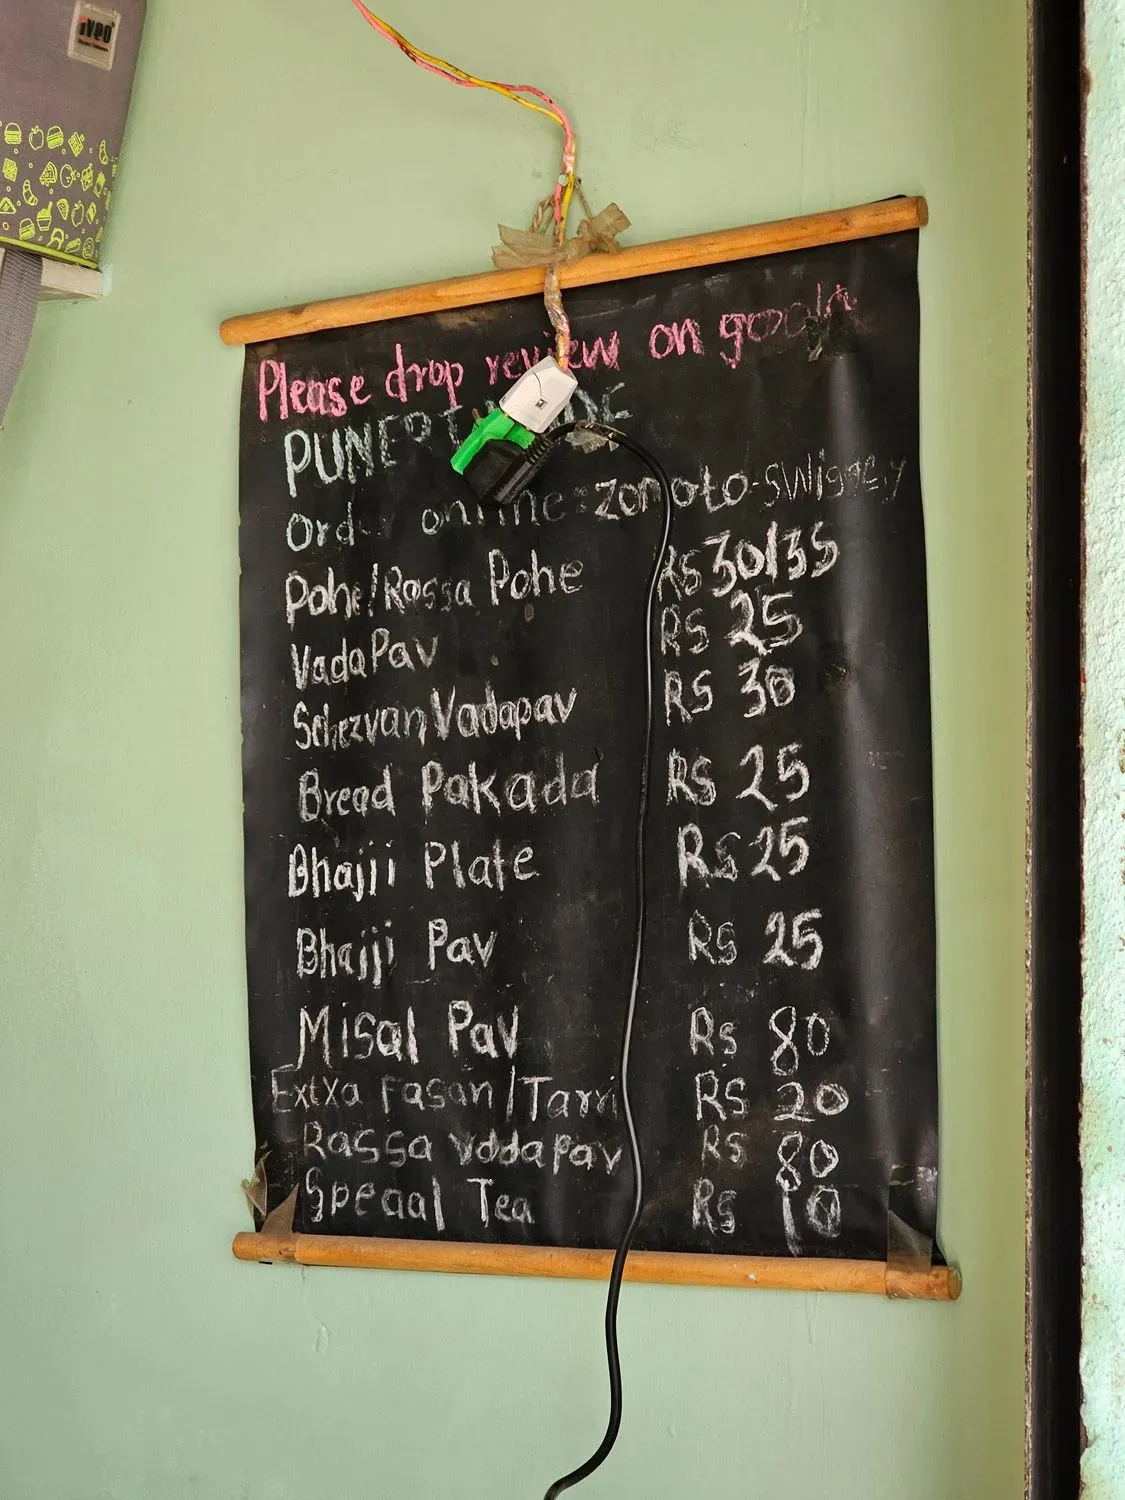 iveo
Please drop review on google
PUNERI
Order online :- zomoto - swiggey
Pohe/Rassa Pohe Rs 30/35
VadaPav Rs 25
Schezvan Vadapav Rs 30
Bread Pakada Rs 25
Bhajji Plate Rs 25
Bhajji Pav Rs 25
Misal Pav Rs 80
Extxa Fasan/Tarri Rs 20
Rassa vadapav Rs 80
Speaal Tea Rs 10